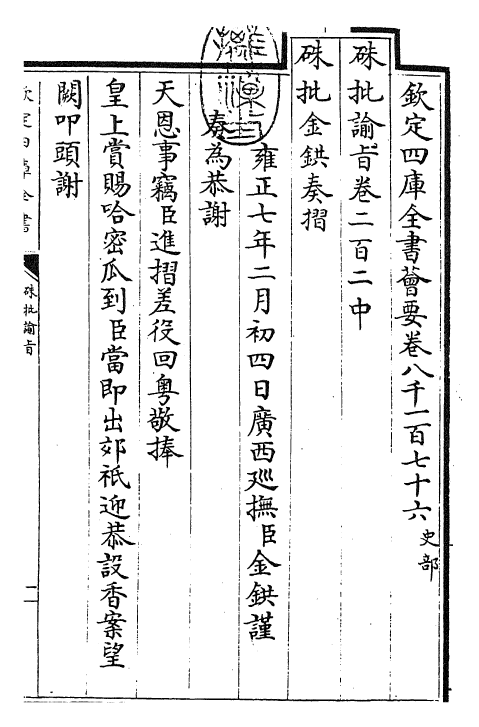 欽定四庫全書薈要卷八千一百七十六史部
硃批諭旨卷二百二中
硃批金鉷奏摺
雍正七年二月初四日廣西廵撫臣金鉷謹
奏為恭謝
天恩事竊臣進摺差役回粵敬捧
皇上賞賜哈密瓜到臣當即出郊祇迎恭設香案望
闕叩頭謝
欽定四庫全書
硃批諭旨
二